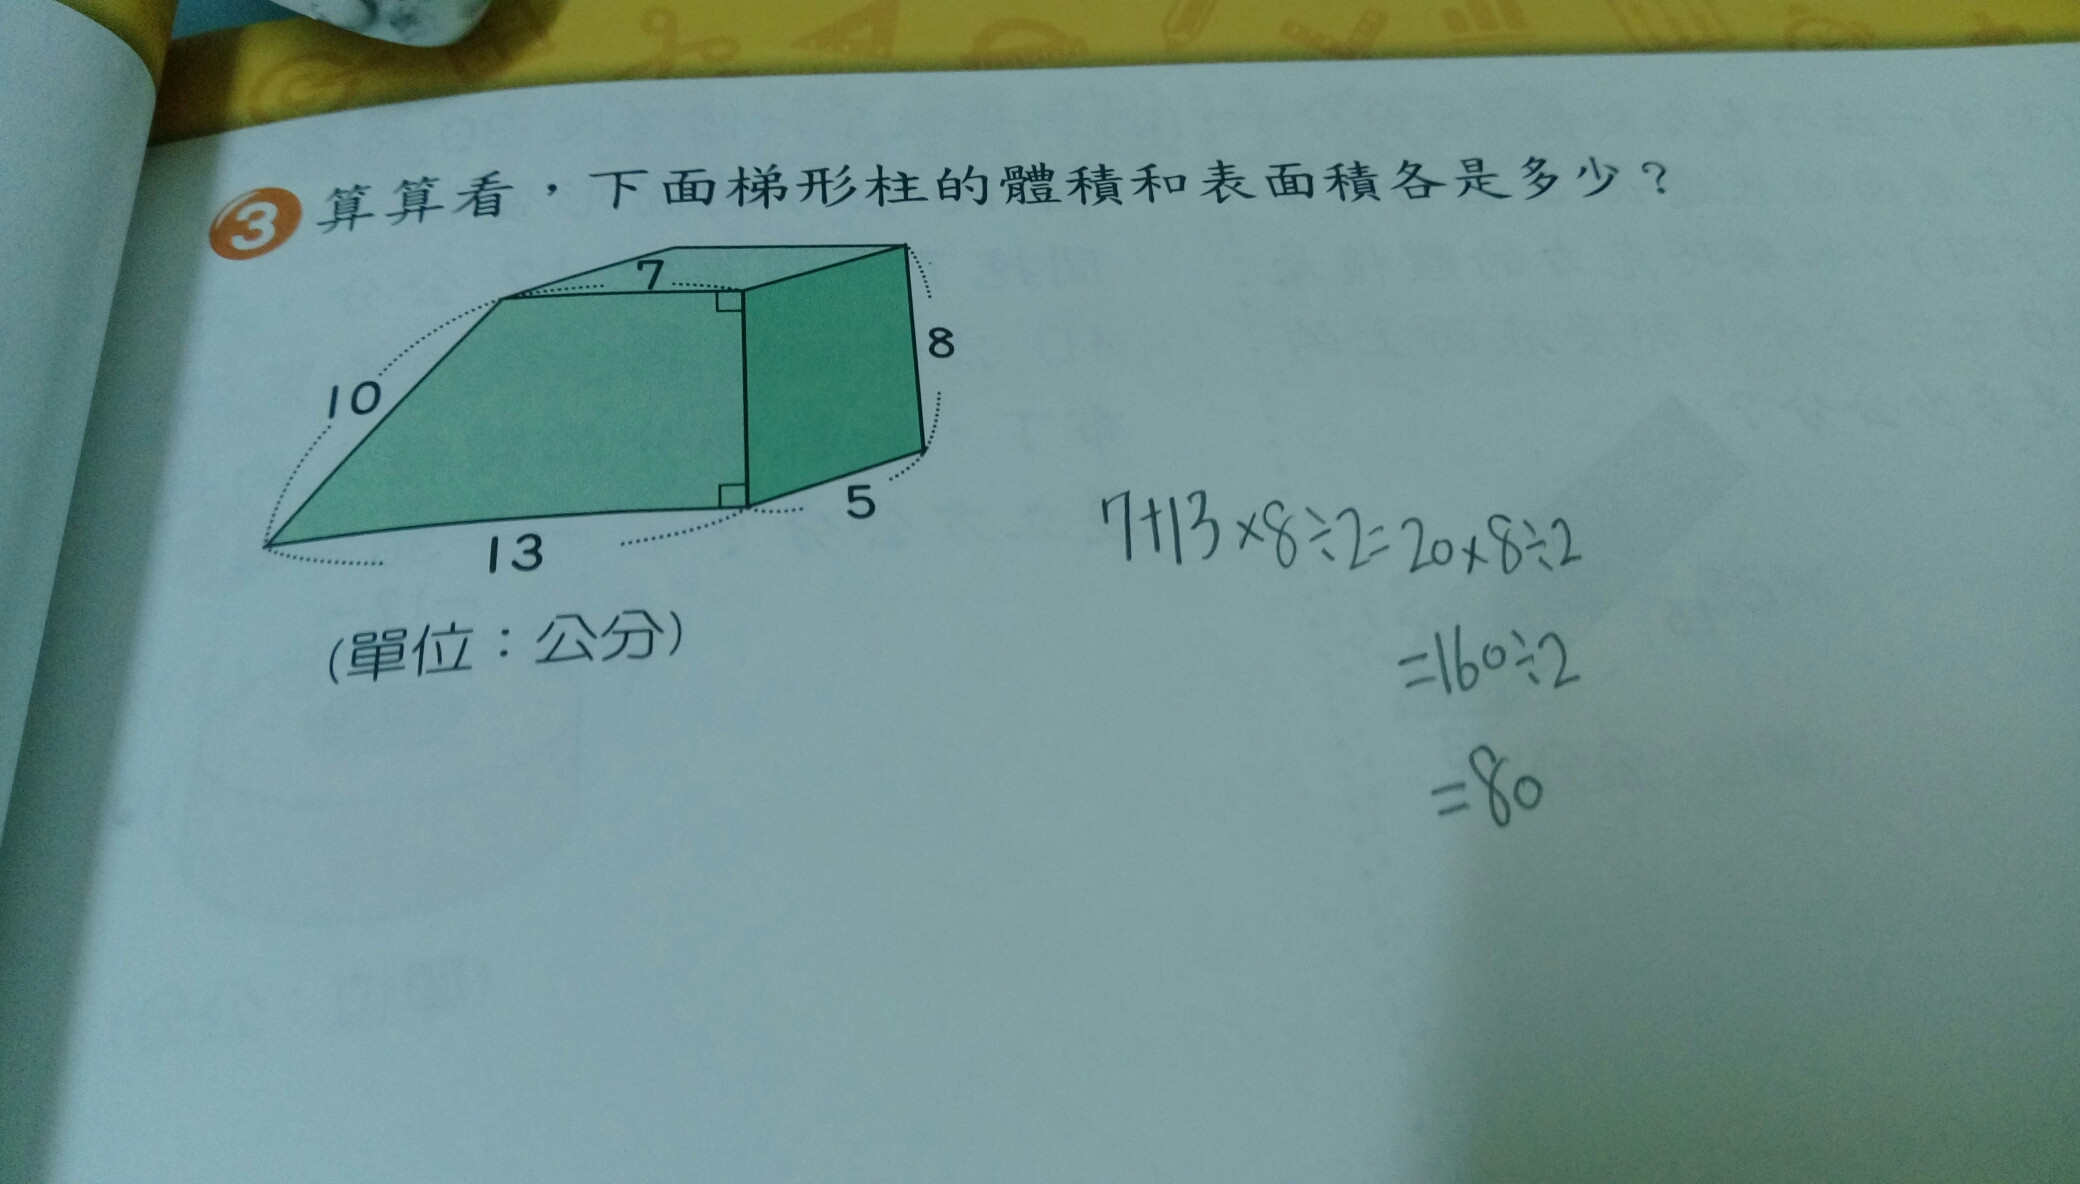 3 算算看,下面梯形柱的體積和表面積各是多少?
7
8
10
5
13
(單位:公分)
7+13×8÷2=20×8÷2
=160÷2
=80